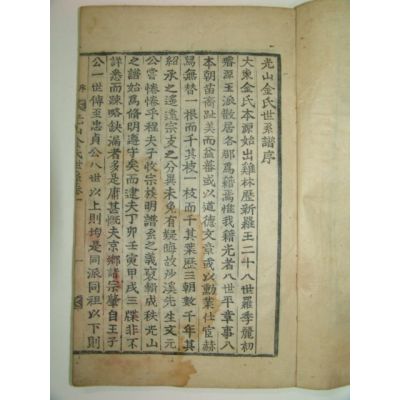 光山金氏世系譜序
大東金氏本源始出雞林歷新羅王二十八世羅季麗初
璿源王派散居各郡爲籍焉惟我籍光者八世平章事入
本朝苗裔趾美而益蕃或以道德文章或以勳業仕宦赫
舃無替一根而千其枝一枝而千其葉歷三朝數千年其
紹承之遙遠宗支之分異未免有疑晦故沙溪先生文元
公嘗惓惓乎程夫子收宗族明譜系之義裒輯成秩光山
之譜始爲條明遵守矣而逮夫丁卯壬寅甲戌三牒非不
詳悉而疎略缺漏者多是庸甚慨夫京鄕諸宗肇自王子
公一世傳至忠貞公八世以上則均是同派同祖以下則
序
光山金氏世系卷一
一